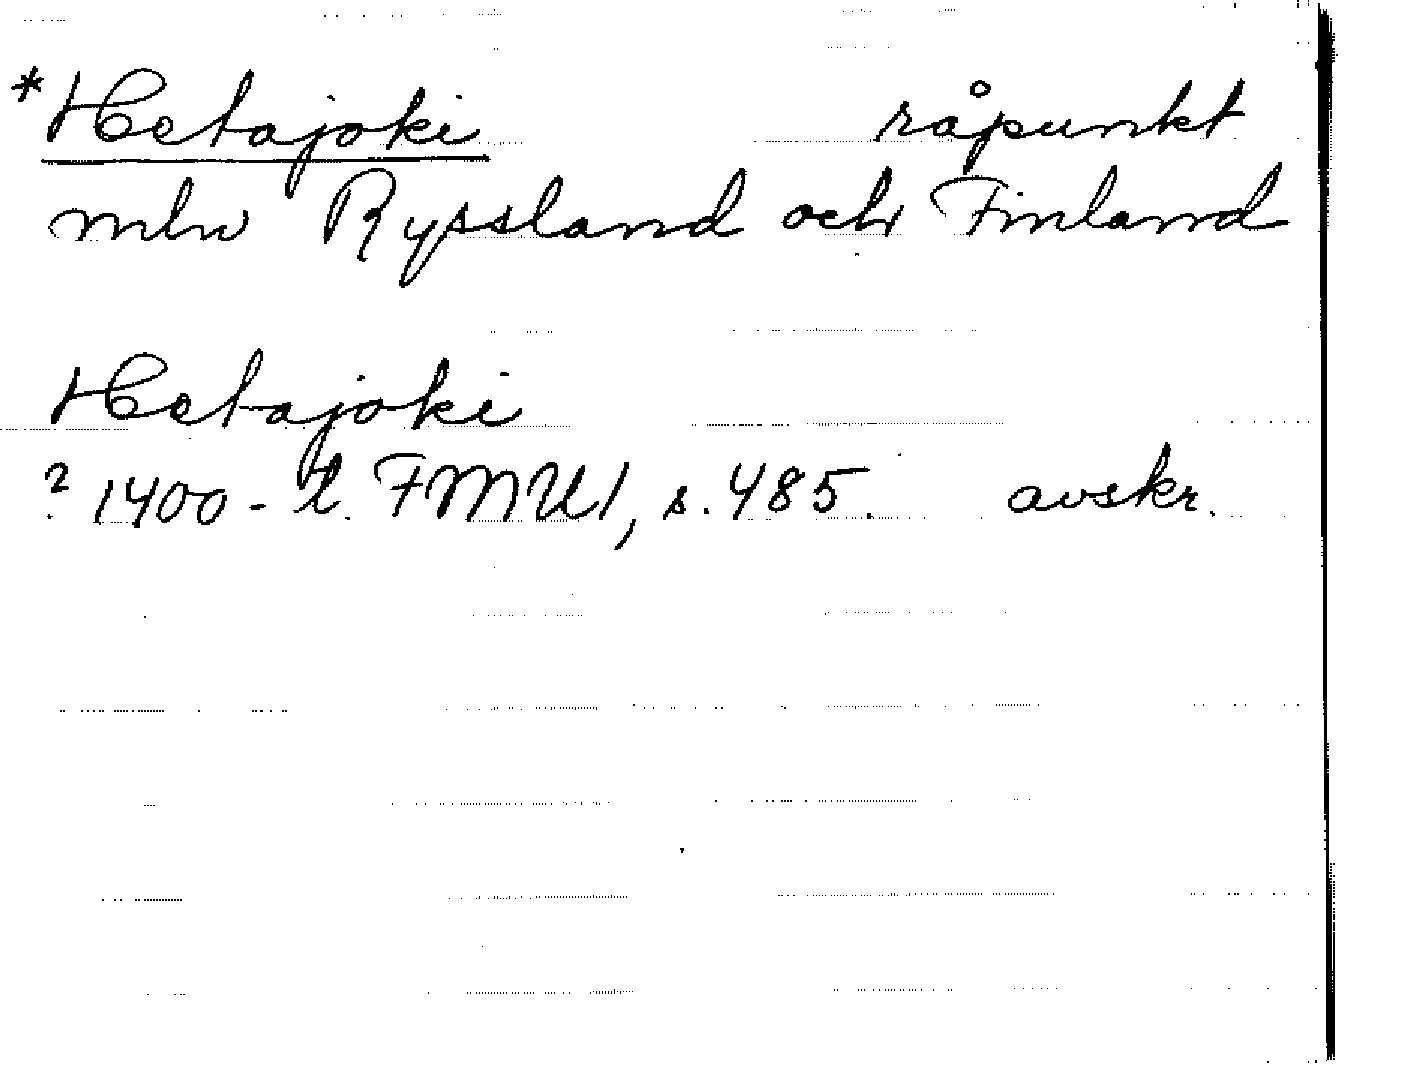 *Hetajoki råpunkt
mln Ryssland och Finland
Hetajoki
? 1400-t. FMU1, s. 485. avskr.